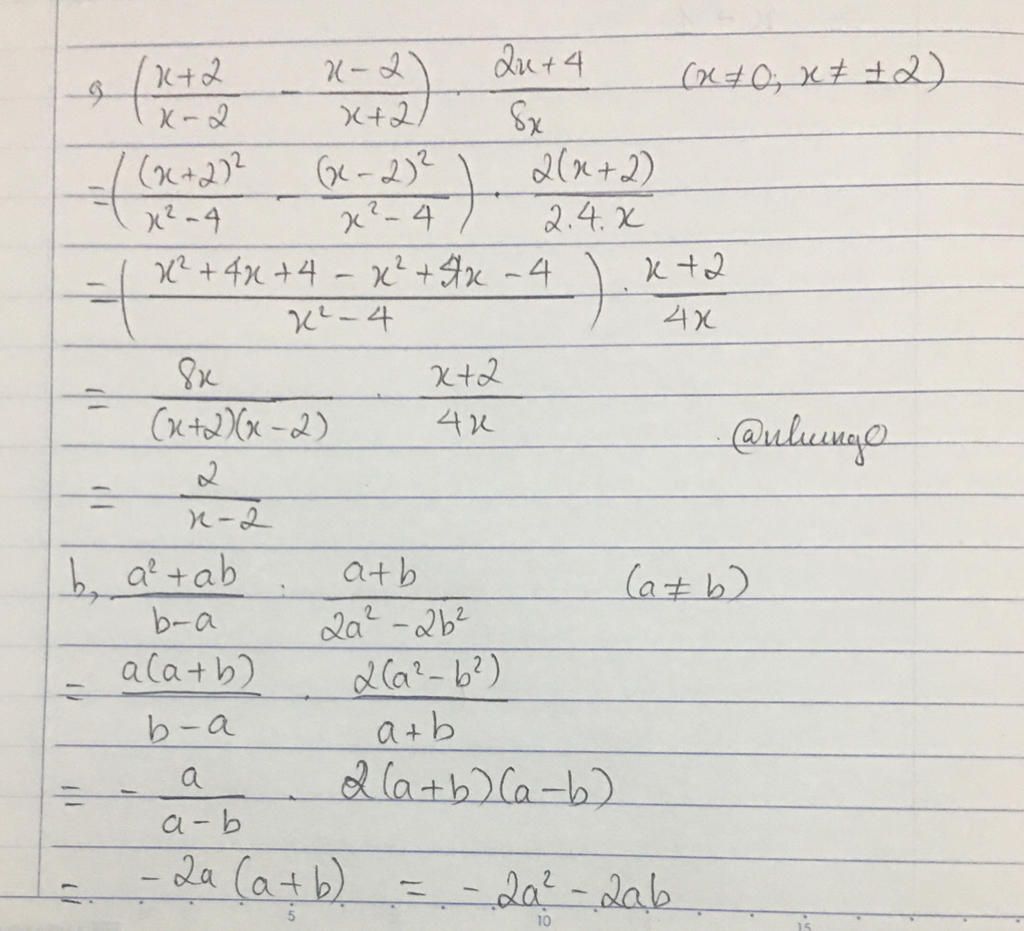 a, ((x+2)/(x-2) - (x-2)/(x+2)) . (2x+4)/(8x) (x≠0; x≠ ±2)
= ((x+2)²/(x²-4) - (x-2)²/(x²-4)) . 2(x+2)/(2.4.x)
= ((x²+4x+4 - x²+4x-4)/(x²-4)) . (x+2)/(4x)
= 8x/((x+2)(x-2)) . (x+2)/(4x)
@nhung0
= 2/(x-2)
b, (a²+ab)/(b-a) : (a+b)/(2a²-2b²) (a≠b)
= a(a+b)/(b-a) . 2(a²-b²)/(a+b)
= - a/(a-b) . 2(a+b)(a-b)
= -2a(a+b) = -2a²-2ab
5 10 15